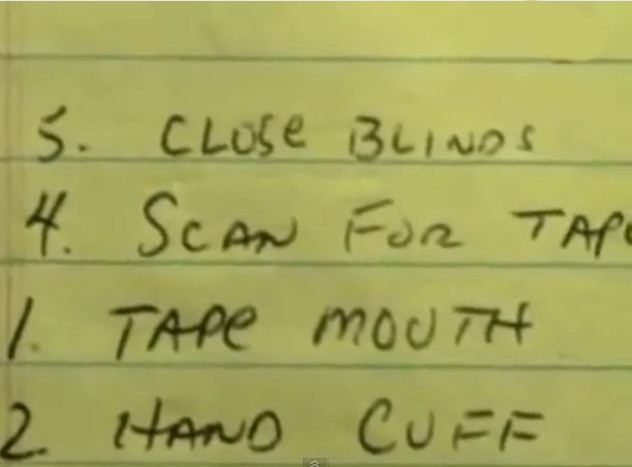 5. CLOSe BLINDS
4. SCAN FOR TAPe
1. TAPe MOUTH
2. HAND CUFF